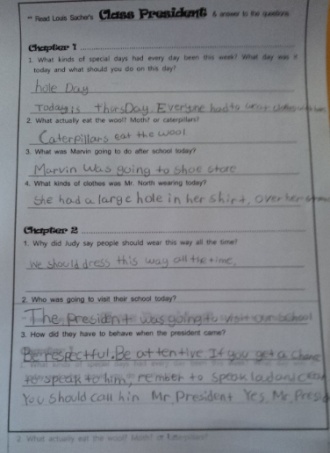 Read Louis Sachar's Class President & answer to the questions.
Chapter 1
1. What kinds of special days had every day been this week? What day was it
today and what should you do on this day?
hole Day
Today is thorsDay. Everyone had to wear
2. What actually eat the wool? Moth? or caterpillars?
Caterpillars eat the wool
3. What was Marvin going to do after school today?
Marvin was going to shoe store
4. What kinds of clothes was Mr. North wearing today?
She had a large hole in her shirt, over her
Chapter 2
1. Why did Judy say people should wear this way all the time?
We should dress this way all the time.
2. Who was going to visit their school today?
The president was going to visit our school
3. How did they have to behave when the president came?
Be respectful. Be attentive If you get a chance
to speak to him, rember to speak loud and
You should call him Mr. President Yes, Mr.
2. What actually eat the wool? Moth? or Caterpillars?